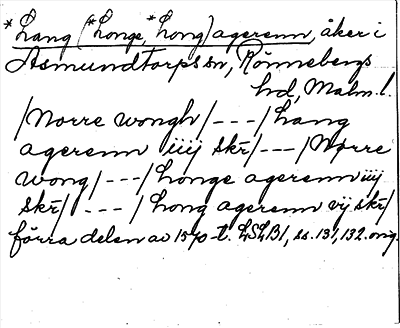 *Lang (*Longe, *Long) agerenn, åker i
Asmundtorps sn, Rönnebergs
hd, Malm. l.
/Norre wongh/ - - - /Lang
agerenn iiij skr̄/ - - - /Nørre
wong/ - - - /Longe agerenn iiij
skr̄/ - - - /Long agerenn vij skr̄/
förra delen av 1570-t. LSLB1, ss. 131, 132. orig.